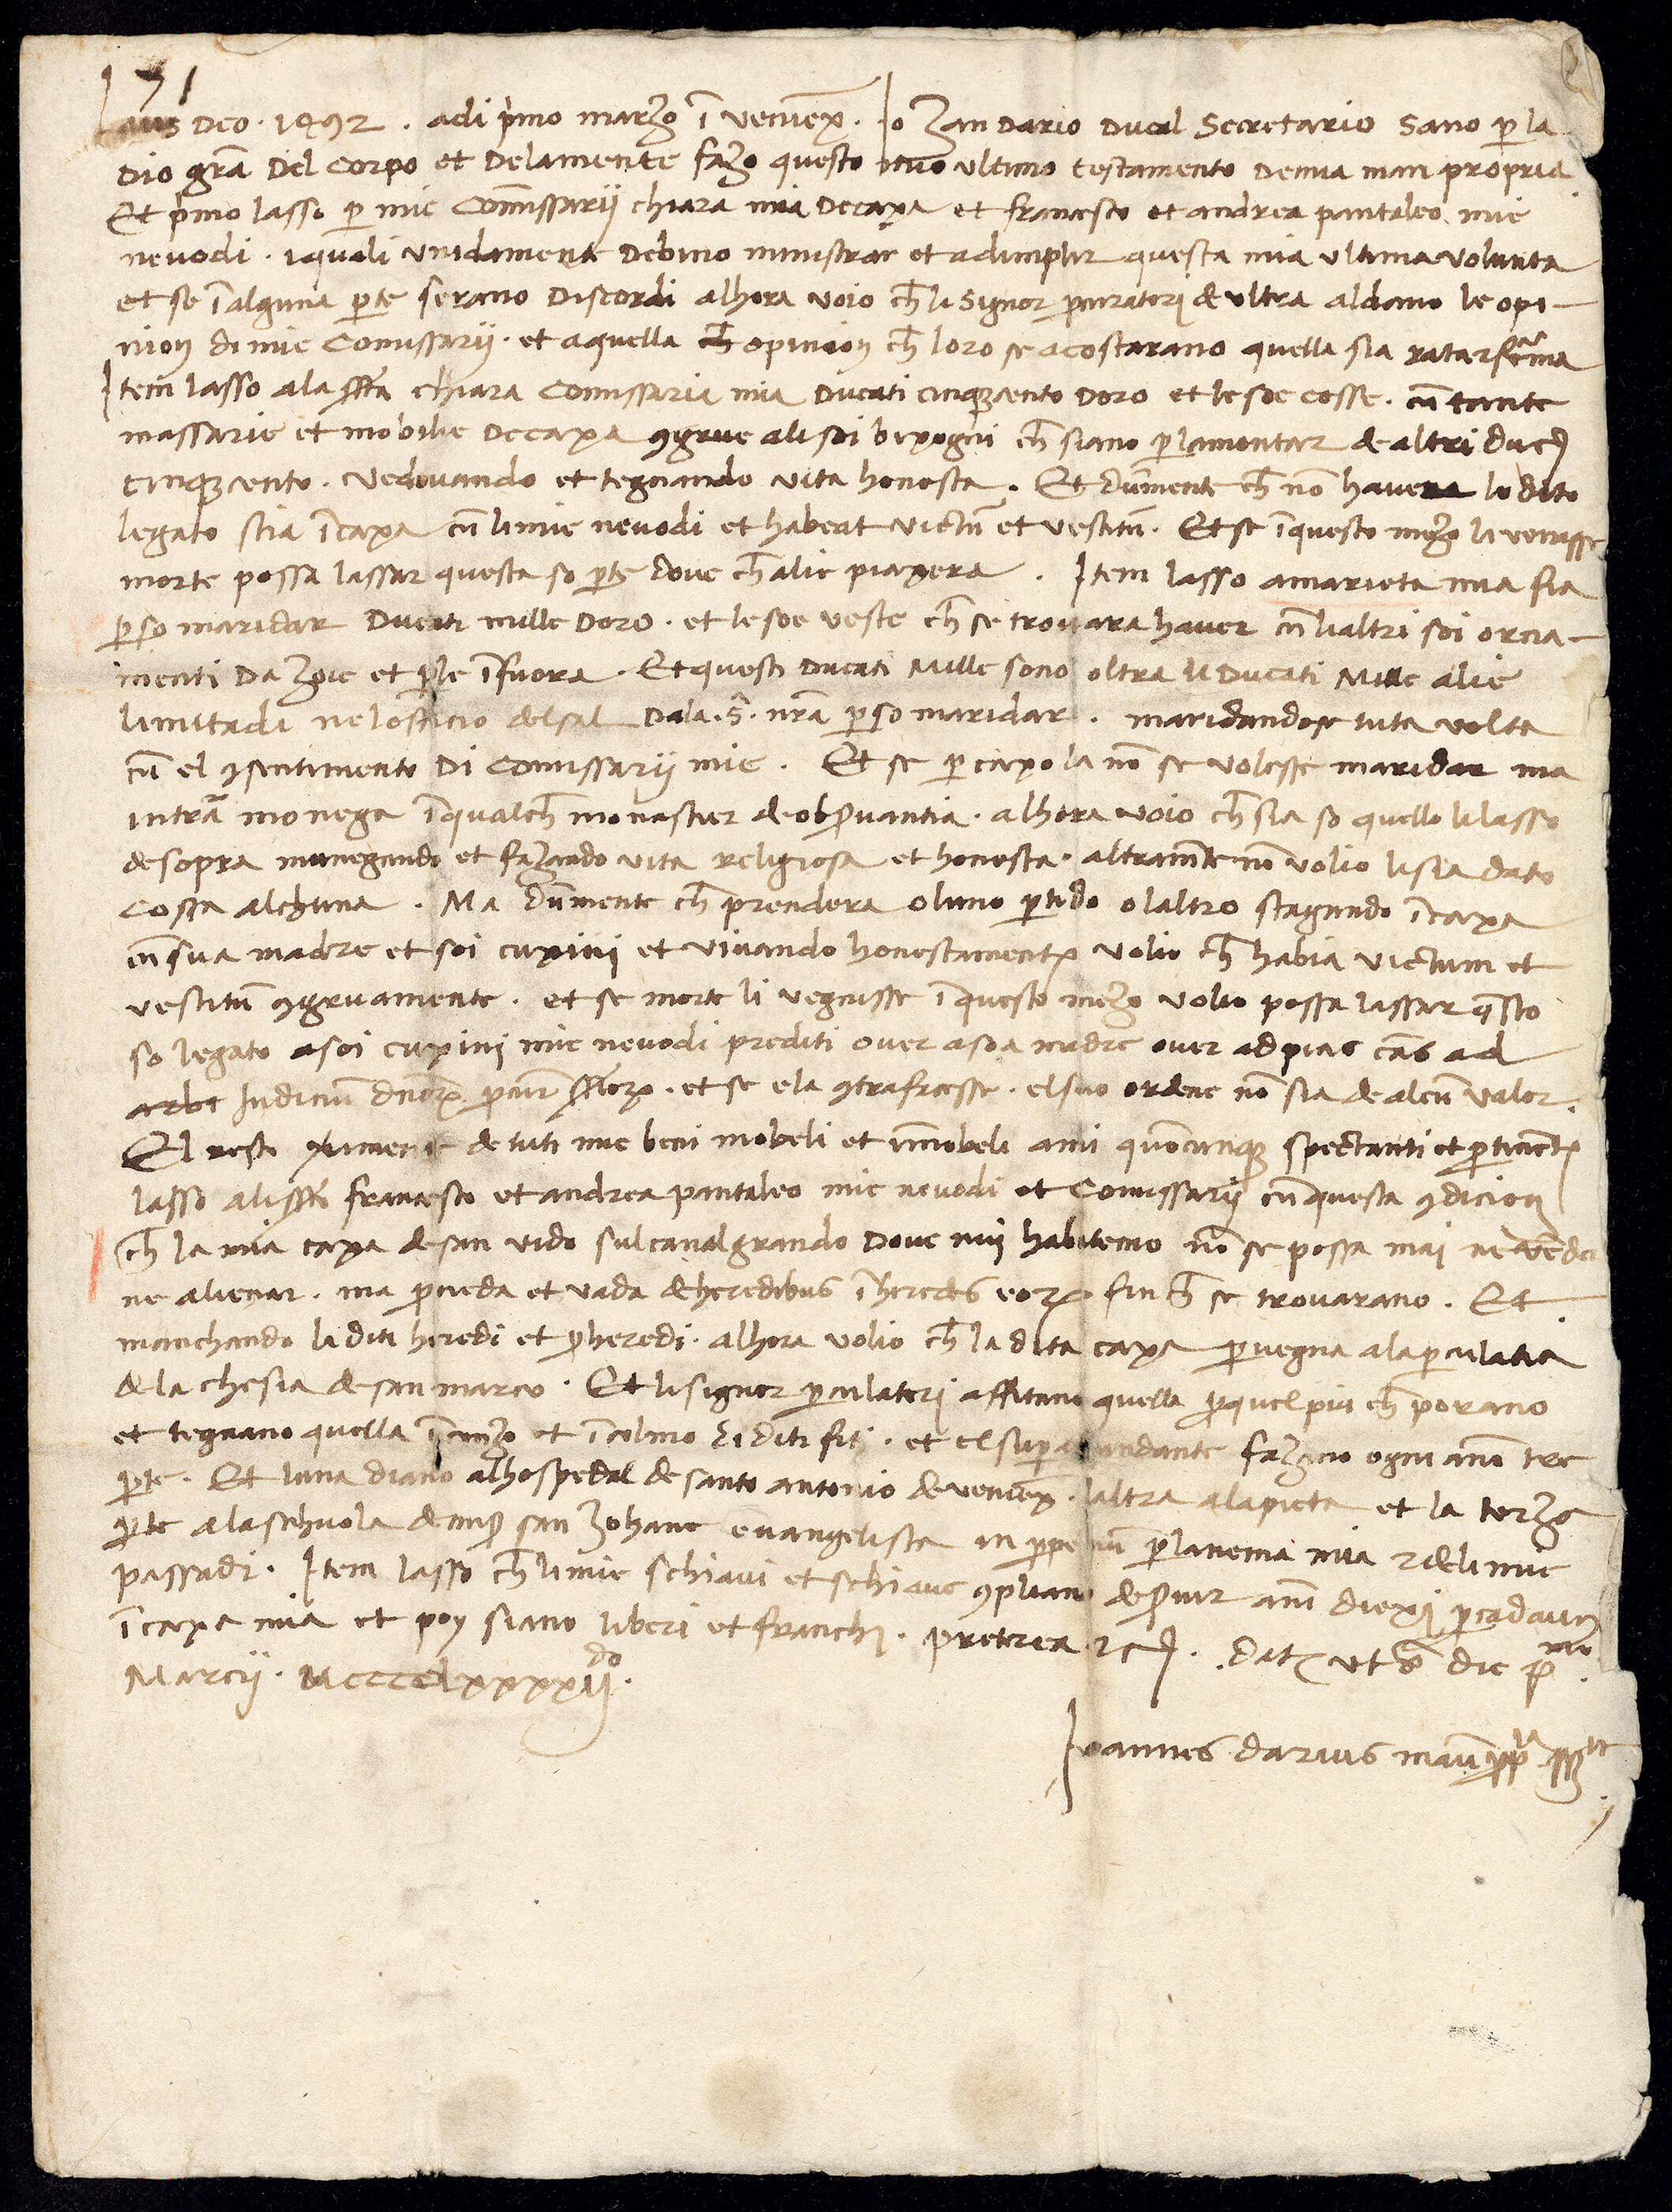 171
Laus Deo. 1492. adi p̄mo marzo ī veniex. Io Zan Dario Ducal Secretario sano ꝑ la
Dio gr̄a del corpo et dela mente fazo questo mio ultimo testamento de mia man propria
Et p̄mo lasso ꝑ mie Com̄issarij chiara mia de caxa et francesco et andrea pantaleo mie
nevodi. i quali unidamente debino ministrar et adimplir questa mia ultima volunta
et se ī alguna ꝑte serano discordi alhora voio ch̄ li Signor ꝓcuratori de ultra aldano le opi-
nion di mie Comissarij. et a quella ch̄ opinion ch̄ loro se acostarano quella sia rata et ferma
Item lasso ala ss̄ta chiara Comissaria mia ducati cinqꝫcento doro et le soe cosse. cū tante
massarie et mobilie de caxa ꝯgrue ali soi bixogni ch̄ siano ꝑ lamontar de altri duc̄
cinqꝫcento. vedovando et tegnando vita honesta. Et dūmente ch̄ nō havera lo dito
legato stia ī caxa cū li mie nevodi et habeat victū et vestitū. Et se ī questo mezo li venisse
morte possa lassar questa so ꝑte dove ch̄ alie piaxera. Item lasso a marieta mia fia
ꝑ so maridar ducati mille doro. et le soe veste ch̄ se trovara haver cū li altri soi orna-
menti da zoie et ꝑle ī fuora. Et questi ducati Mille sono oltra li Ducati Mille alie
limitadi ne lofficio del sal dala. S. nr̄a ꝑ so maridar. maridandose tuta volta
cū el ꝯsentimento di Comissarij mie. Et se ꝑ caxo la nō se volesse maridar ma
intrar monega ī qualch̄ monastier de obs̄vantia. alhora voio ch̄ sia so quello li lasso
de sopra munegando et fazando vita religiosa et honesta. altramēte nō volio li sia dato
cossa alchuna. Ma dūmente ch̄ prendera o luno ꝑtido o laltro stagando ī caxa
cū sua madre et soi cuxini et vivando honestamente volio ch̄ habia victum et
vestitū ꝯgruamente. et se morte li vegnisse ī questo mezo volio possa lassar q̄sto
so legato a soi cuxini mie nevodi prediti over a soa madre over ad pias cās ad
arbt Iudicium dn̄oꝝ ꝓcur ss̄toꝝ. et se ela ꝯtrafacesse. el suo ordene nō sia de alcū valor.
El resto de tuti mie beni mobeli et im̄obeli a mi quōcunqꝫ spectanti et ꝑtinenti
lasso ali ss̄ti francesco et andrea pantaleo mie nevodi et Comissarij cū questa ꝯdicion
ch̄ la mia caxa de san vido sul canal grando dove mi habitemo nō se possa mai ne vēder
ne alienar. ma ꝓcieda et vada de heredibus ī heredes eoꝝ fin ch̄ se trovarano. Et
manchando li diti heredi et ꝓheredi. alhora volio ch̄ la dita caxa ꝑvegna ala ꝓculatia
de la chesia de san marco. Et li signor ꝓculatori affitano quella ꝑ quel piu ch̄ porano
et tegnano quella ī conzo et ī colmo di diti fiti. et el supabundante fazano ogni anō tre
ꝑte. Et luna diano alhospedal de santo antonio de veniex. laltra ala pieta et la terza
ꝑte ala schuola de mis̄ san Zohane evangelista in ꝑpetuū ꝑ lanema mia et de li mie
passadi. Item lasso ch̄ li mie schiavi et schiave ꝯpliano de s̄vir anī diexe ꝑ cadaun
ī caxa mia et poy siano liberi et franchi. preterea etc̄. dat ut s̄ die p̄mo
Marcij. MCCCCLXXXXIJdo.
Ioannes darius manu ꝓpria ss̄